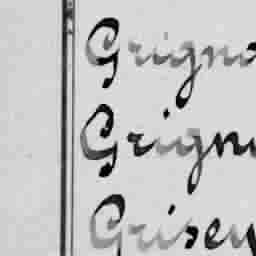 Grigno
Grign
Grisey